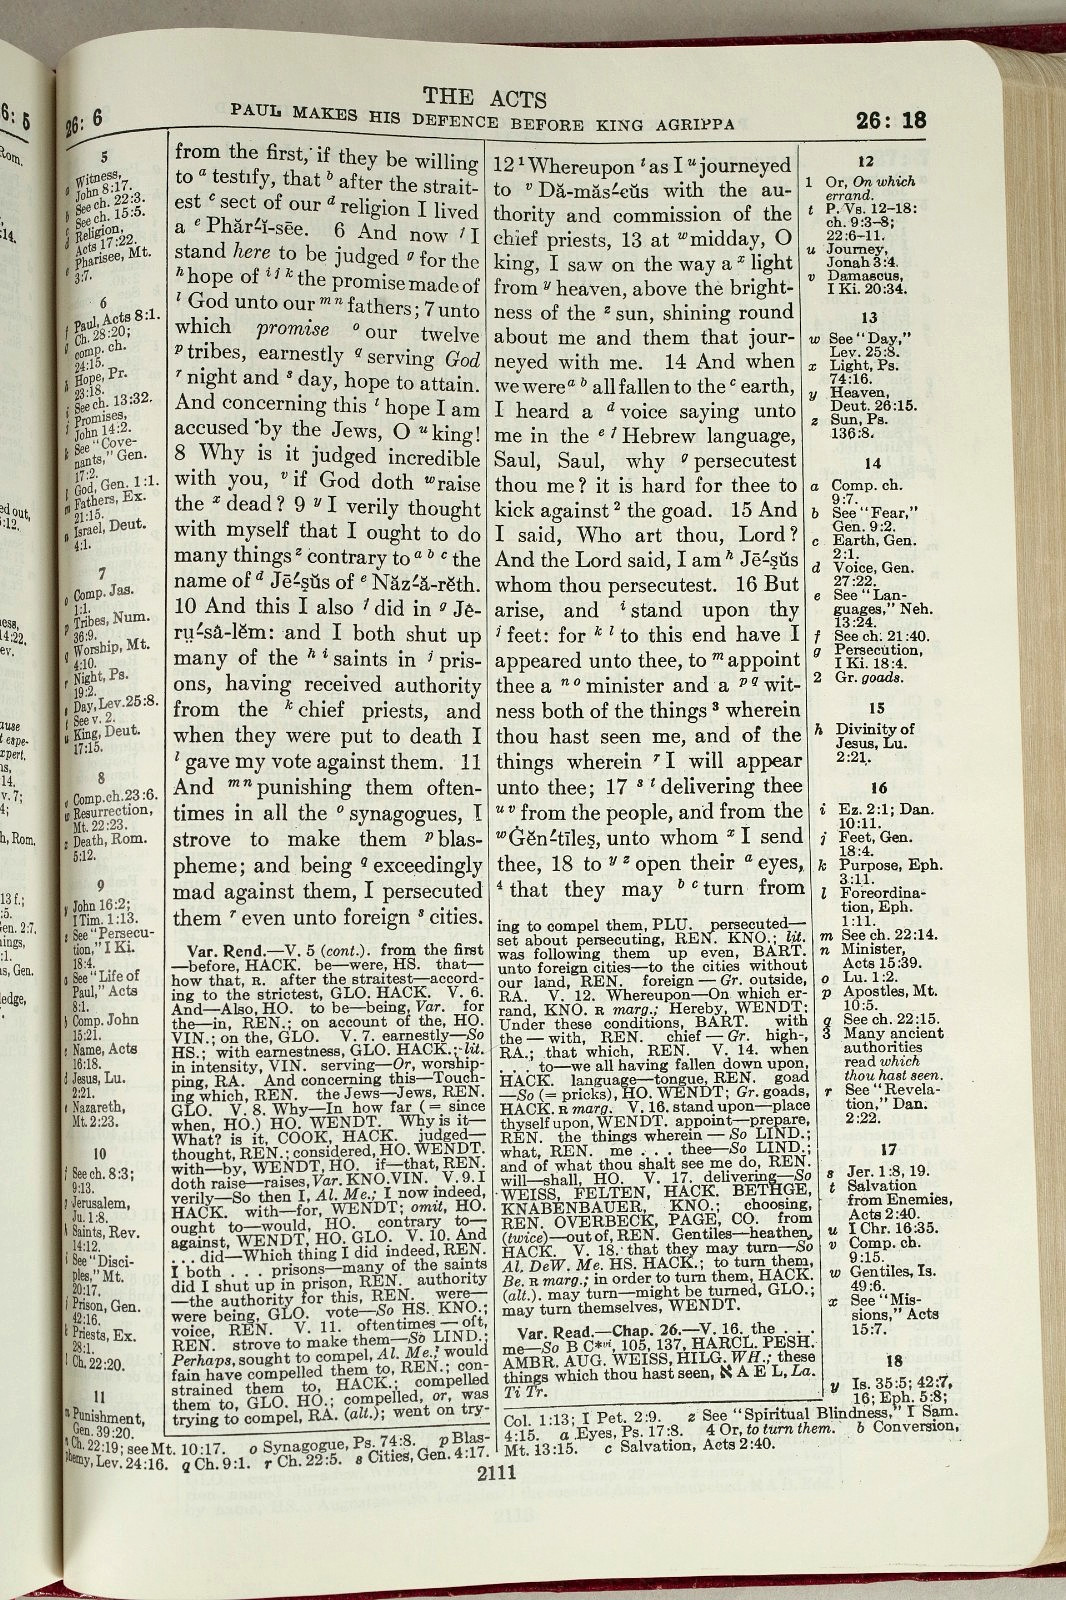 THE ACTS
26: 6
PAUL MAKES HIS DEFENCE BEFORE KING AGRIPPA
26: 18
5
a Witness,
John 8:17.
b See ch. 22:3.
c See ch. 15:5.
d Religion,
Acts 17:22.
e Pharisee, Mt.
3:7.
6
f Paul, Acts 8:1.
g Ch. 28:20;
comp. ch.
24:15.
h Hope, Pr.
23:18.
i See ch. 13:32.
j Promises,
John 14:2.
k See "Cove-
nants," Gen.
17:2.
l God, Gen. 1:1.
m Fathers, Ex.
21:15.
n Israel, Deut.
4:1.
7
o Comp. Jas.
1:1.
p Tribes, Num.
36:9.
q Worship, Mt.
4:10.
r Night, Ps.
19:2.
s Day, Lev. 25:8.
t See v. 2.
u King, Deut.
17:15.
8
v Comp. ch. 23:6.
w Resurrection,
Mt. 22:23.
x Death, Rom.
5:12.
9
y John 16:2;
I Tim. 1:13.
z See "Persecu-
tion," I Ki.
18:4.
a See "Life of
Paul," Acts
8:1.
b Comp. John
15:21.
c Name, Acts
16:18.
d Jesus, Lu.
2:21.
e Nazareth,
Mt. 2:23.
10
f See ch. 8:3;
9:13.
g Jerusalem,
Ju. 1:8.
h Saints, Rev.
14:12.
i See "Disci-
ples," Mt.
20:17.
j Prison, Gen.
42:16.
k Priests, Ex.
28:1.
l Ch. 22:20.
11
m Punishment,
Gen. 39:20.
n Ch. 22:19; see Mt. 10:17. o Synagogue, Ps. 74:8. p Blas-
phemy, Lev. 24:16. q Ch. 9:1. r Ch. 22:5. s Cities, Gen. 4:17.
from the first, if they be willing
to a testify, that b after the strait-
est c sect of our d religion I lived
a e Phăr´ĭ-sēe. 6 And now f I
stand here to be judged g for the
h hope of i j k the promise made of
l God unto our m n fathers; 7 unto
which promise o our twelve
p tribes, earnestly q serving God
r night and s day, hope to attain.
And concerning this t hope I am
accused by the Jews, O u king!
8 Why is it judged incredible
with you, v if God doth w raise
the x dead? 9 y I verily thought
with myself that I ought to do
many things z contrary to a b c the
name of d Jē´ṣŭs of e Năz´ȧ-rĕth.
10 And this I also f did in g Jĕ-
rụ´sȧ-lĕm: and I both shut up
many of the h i saints in j pris-
ons, having received authority
from the k chief priests, and
when they were put to death I
l gave my vote against them. 11
And m n punishing them often-
times in all the o synagogues, I
strove to make them p blas-
pheme; and being q exceedingly
mad against them, I persecuted
them r even unto foreign s cities.
Var. Rend.—V. 5 (cont.). from the first
—before, HACK. be—were, HS. that—
how that, R. after the straitest—accord-
ing to the strictest, GLO. HACK. V. 6.
And—Also, HO. to be—being, Var. for
the—in, REN.; on account of the, HO.
VIN.; on the, GLO. V. 7. earnestly—So
HS.; with earnestness, GLO. HACK.; lit.
in intensity, VIN. serving—Or, worship-
ping, RA. And concerning this—Touch-
ing which, REN. the Jews—Jews, REN.
GLO. V. 8. Why—In how far (= since
when, HO.) HO. WENDT. Why is it—
What? is it, COOK, HACK. judged—
thought, REN.; considered, HO. WENDT.
with—by, WENDT, HO. if—that, REN.
doth raise—raises, Var. KNO. VIN. V. 9. I
verily—So then I, Al. Me.; I now indeed,
HACK. with—for, WENDT; omit, HO.
ought to—would, HO. contrary to—
against, WENDT, HO. GLO. V. 10. And
. . . did—Which thing I did indeed, REN.
I both . . . prisons—many of the saints
did I shut up in prison, REN. authority
—the authority for this, REN. were—
were being, GLO. vote—So HS. KNO.;
voice, REN. V. 11. oftentimes—oft,
REN. strove to make them—So LIND.;
Perhaps, sought to compel, Al. Me.; would
fain have compelled them to, REN.; con-
strained them to, HACK.; compelled
them to, GLO. HO.; compelled, or, was
trying to compel, RA. (alt.); went on try-
12 1 Whereupon t as I u journeyed
to v Dă-măs´cŭs with the au-
thority and commission of the
chief priests, 13 at w midday, O
king, I saw on the way a x light
from y heaven, above the bright-
ness of the z sun, shining round
about me and them that jour-
neyed with me. 14 And when
we were a b all fallen to the c earth,
I heard a d voice saying unto
me in the e f Hebrew language,
Saul, Saul, why g persecutest
thou me? it is hard for thee to
kick against 2 the goad. 15 And
I said, Who art thou, Lord?
And the Lord said, I am h Jē´ṣŭs
whom thou persecutest. 16 But
arise, and i stand upon thy
j feet: for k l to this end have I
appeared unto thee, to m appoint
thee a n o minister and a p q wit-
ness both of the things 3 wherein
thou hast seen me, and of the
things wherein r I will appear
unto thee; 17 s t delivering thee
u v from the people, and from the
w Ġĕn´tīleṣ, unto whom x I send
thee, 18 to y z open their a eyes,
4 that they may b c turn from
ing to compel them, PLU. persecuted—
set about persecuting, REN. KNO.; lit.
was following them up even, BART.
unto foreign cities—to the cities without
our land, REN. foreign—Gr. outside,
RA. V. 12. Whereupon—On which er-
rand, KNO. R marg.; Hereby, WENDT;
Under these conditions, BART. with
the—with, REN. chief—Gr. high-,
RA.; that which, REN. V. 14. when
. . . to—we all having fallen down upon,
HACK. language—tongue, REN. goad
—So (= pricks), HO. WENDT; Gr. goads,
HACK. R marg. V. 16. stand upon—place
thyself upon, WENDT. appoint—prepare,
REN. the things wherein—So LIND.;
what, REN. me . . . thee—So LIND.;
and of what thou shalt see me do, REN.
will—shall, HO. V. 17. delivering—So
WEISS, FELTEN, HACK. BETHGE,
KNABENBAUER, KNO.; choosing,
REN. OVERBECK, PAGE, CO. from
(twice)—out of, REN. Gentiles—heathen,
HACK. V. 18. that they may turn—So
Al. DeW. Me. HS. HACK.; to turn them,
Be. R marg.; in order to turn them, HACK.
(alt.). may turn—might be turned, GLO.;
may turn themselves, WENDT.
Var. Read.—Chap. 26.—V. 16. the . . .
me—So B C*vi, 105, 137, HARCL. PESH.
AMBR. AUG. WEISS, HILG. WH.; these
things which thou hast seen, ℵ A E L, La.
Ti Tr.
Col. 1:13; I Pet. 2:9. z See "Spiritual Blindness," I Sam.
4:15. a Eyes, Ps. 17:8. 4 Or, to turn them. b Conversion,
Mt. 13:15. c Salvation, Acts 2:40.
12
1 Or, On which
errand.
t P. Vs. 12–18:
ch. 9:3–8;
22:6–11.
u Journey,
Jonah 3:4.
v Damascus,
I Ki. 20:34.
13
w See "Day,"
Lev. 25:8.
x Light, Ps.
74:16.
y Heaven,
Deut. 26:15.
z Sun, Ps.
136:8.
14
a Comp. ch.
9:7.
b See "Fear,"
Gen. 9:2.
c Earth, Gen.
2:1.
d Voice, Gen.
27:22.
e See "Lan-
guages," Neh.
13:24.
f See ch. 21:40.
g Persecution,
I Ki. 18:4.
2 Gr. goads.
15
h Divinity of
Jesus, Lu.
2:21.
16
i Ez. 2:1; Dan.
10:11.
j Feet, Gen.
18:4.
k Purpose, Eph.
3:11.
l Foreordina-
tion, Eph.
1:11.
m See ch. 22:14.
n Minister,
Acts 15:39.
o Lu. 1:2.
p Apostles, Mt.
10:5.
q See ch. 22:15.
3 Many ancient
authorities
read which
thou hast seen.
r See "Revela-
tion," Dan.
2:22.
17
s Jer. 1:8, 19.
t Salvation
from Enemies,
Acts 2:40.
u I Chr. 16:35.
v Comp. ch.
9:15.
w Gentiles, Is.
49:6.
x See "Mis-
sions," Acts
15:7.
18
y Is. 35:5; 42:7,
16; Eph. 5:8;
2111